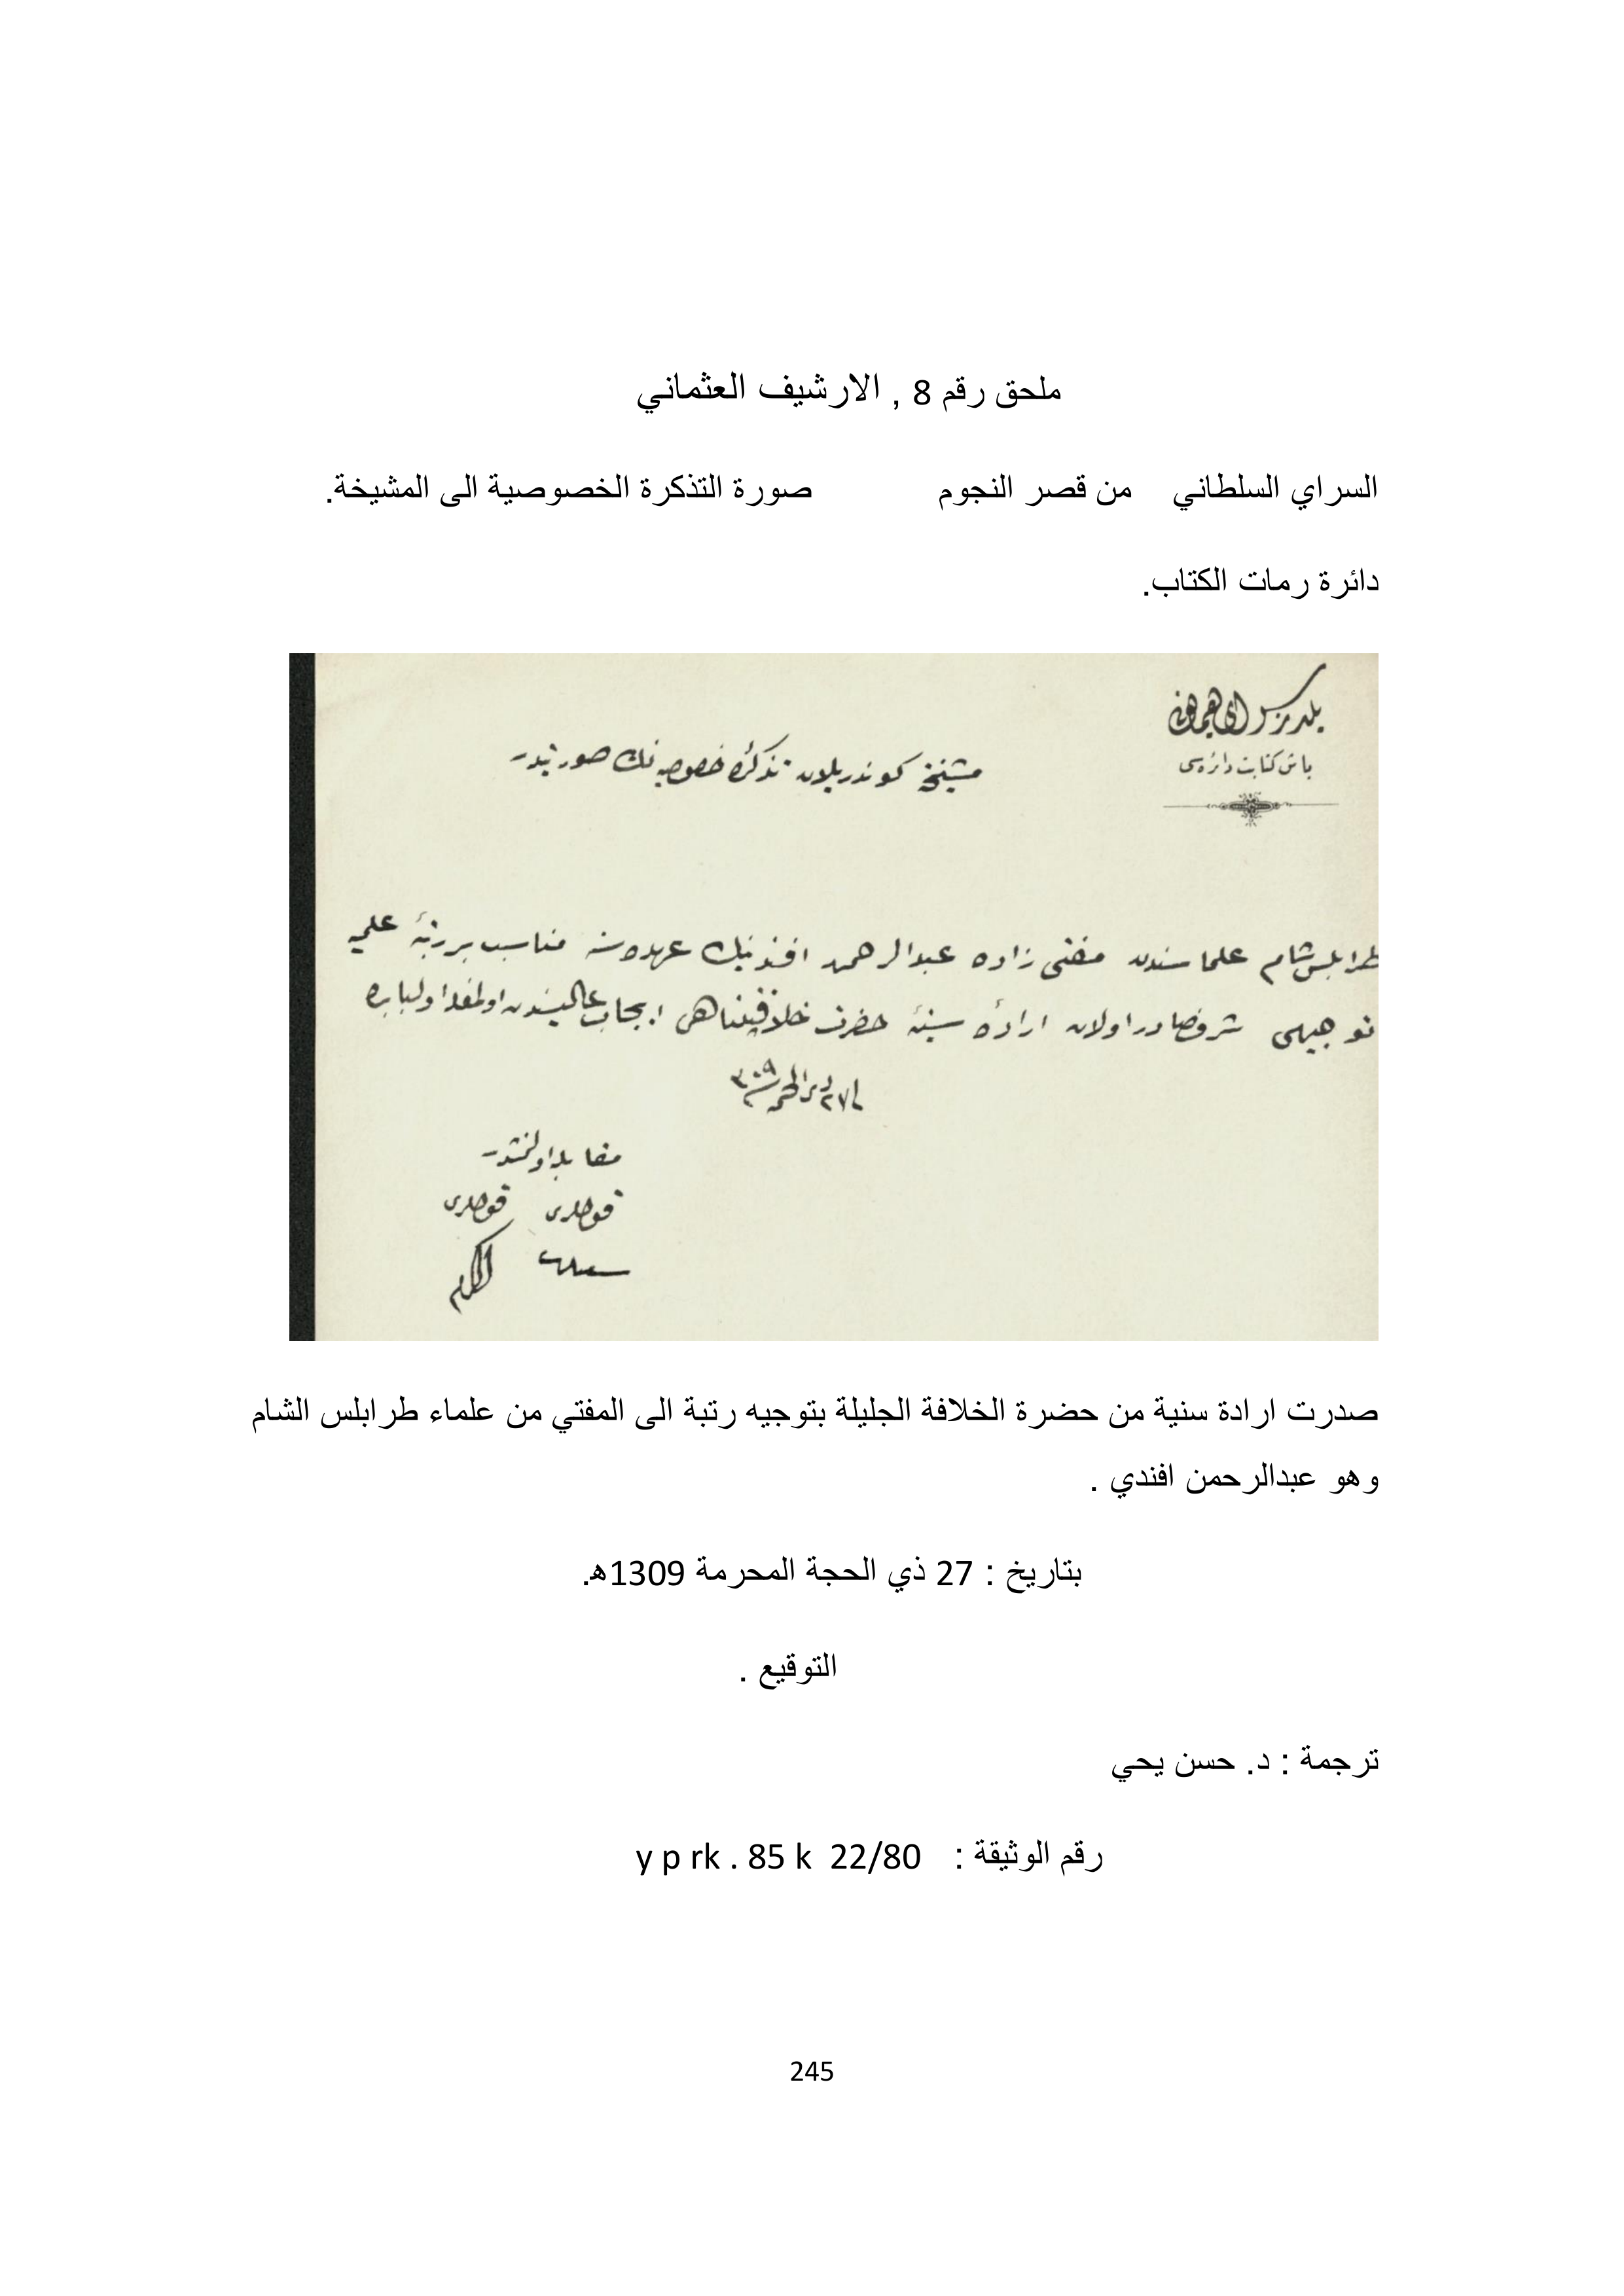 ملحق رقم 8 , الارشيف العثماني
السراي السلطاني من قصر النجوم صورة التذكرة الخصوصية الى المشيخة.
دائرة رمات الكتاب.
يلديز سراى همايونى
باش كتابت دائره سى
مشيخته كوندريلان تذكرۀ خصوصيه نك صورتيدر
طرابلس شام علماسندن مفتى زاده عبدالرحمن افندينك عهده سنه مناسب بر رتبۀ علميه
توجيهى شرفصادر اولان ارادۀ سنيۀ حضرت خلافتپناهى ايجاب عاليسندن اولمغله اولبابده
فى ٢٧ ذى الحجه سنه ٣٠٩
مقابله اولنمشدر
قوللرى قوللرى
صدرت ارادة سنية من حضرة الخلافة الجليلة بتوجيه رتبة الى المفتي من علماء طرابلس الشام
وهو عبدالرحمن افندي .
بتاريخ : 27 ذي الحجة المحرمة 1309ه.
التوقيع .
ترجمة : د. حسن يحي
رقم الوثيقة : y p rk . 85 k 22/80
245